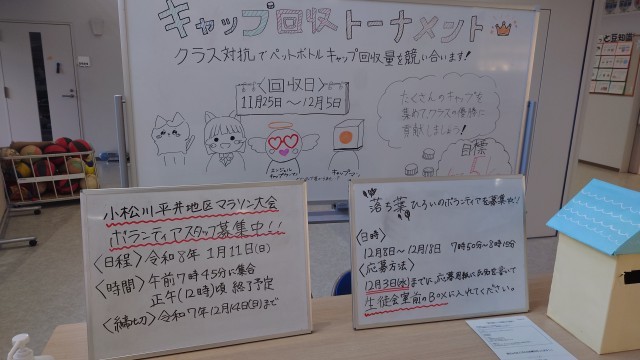 キャップ回収トーナメント
クラス対抗でペットボトルキャップ回収量を競い合います!
〈回収日〉
11月25日〜12月5日
たくさんのキャップを
集めてクラスの優勝に
貢献しましょう!
目標
小松川平井地区マラソン大会
ボランティアスタッフ募集中!!
〈日程〉令和8年1月11日(日)
〈時間〉午前7時45分に集合
正午(12時)頃 終了予定
〈締切〉令和7年12月14日(日)まで
落ち葉ひろいのボランティアを募集中!
〈日時〉
12月8日〜12月18日 7時50分〜8時15分
〈応募方法〉
12月3日(水)までに応募用紙に名前を書いて
生徒会室前のBOXに入れてください。
と豆知識